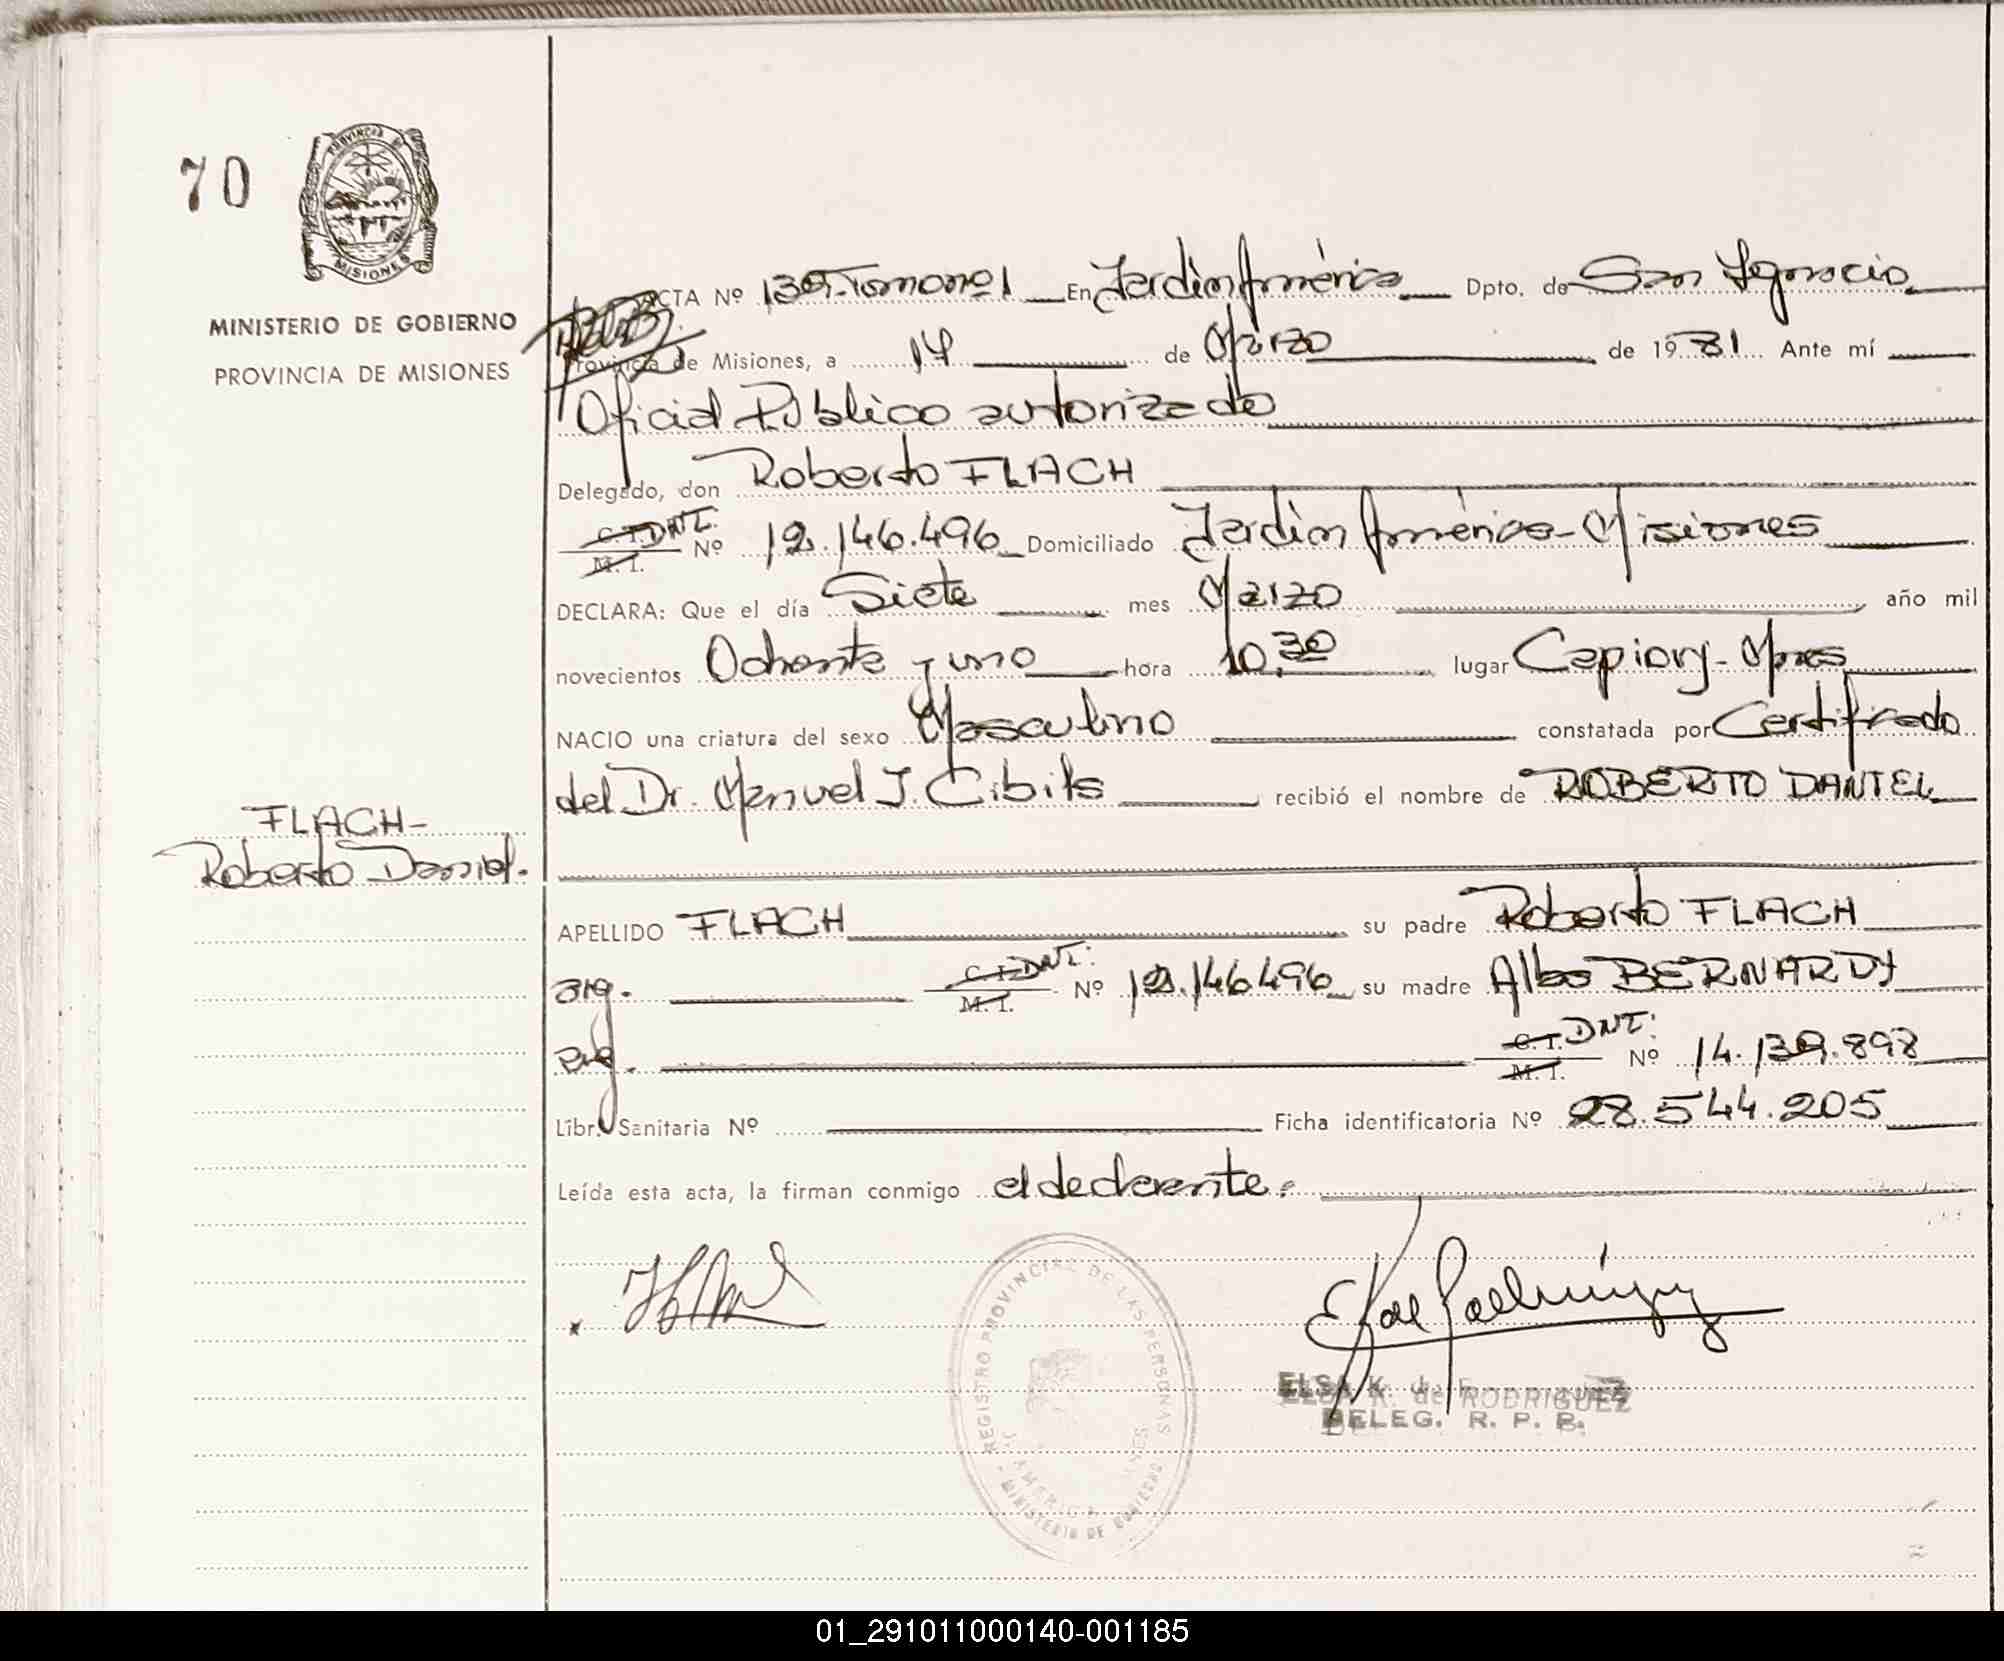 70
PROVINCIA DE
MISIONES
MINISTERIO DE GOBIERNO
PROVINCIA DE MISIONES
ACTA Nº 139-Tomo nº1 En Jardín América Dpto. de San Ignacio
Provincia de Misiones, a 14 de Marzo de 1981 Ante mí
Oficial Público autorizado
Delegado, don Roberto FLACH
C. I. DNI. M. I. Nº 12.146.496 Domiciliado Jardín América-Misiones
DECLARA: Que el día Siete mes Marzo año mil
novecientos Ochenta y uno hora 10,30 lugar Capiovy-Mnes
NACIO una criatura del sexo Masculino constatada por Certificado
del Dr. Manuel J. Cibils recibió el nombre de ROBERTO DANIEL
FLACH-
Roberto Daniel.
APELLIDO FLACH su padre Roberto FLACH
arg. C. I. DNI: M. I. Nº 12.146.496 su madre Alba BERNARDY
arg. C. I. DNI: M. I. Nº 14.139.898
Libr. Sanitaria Nº Ficha identificatoria Nº 28.544.205
Leída esta acta, la firman conmigo el declarente.
REGISTRO PROVINCIAL DE LAS PERSONAS
AMERICA
MINISTERIO DE GOBIERNO
ELSA K. de RODRIGUEZ
DELEG. R. P. P.
01_291011000140-001185